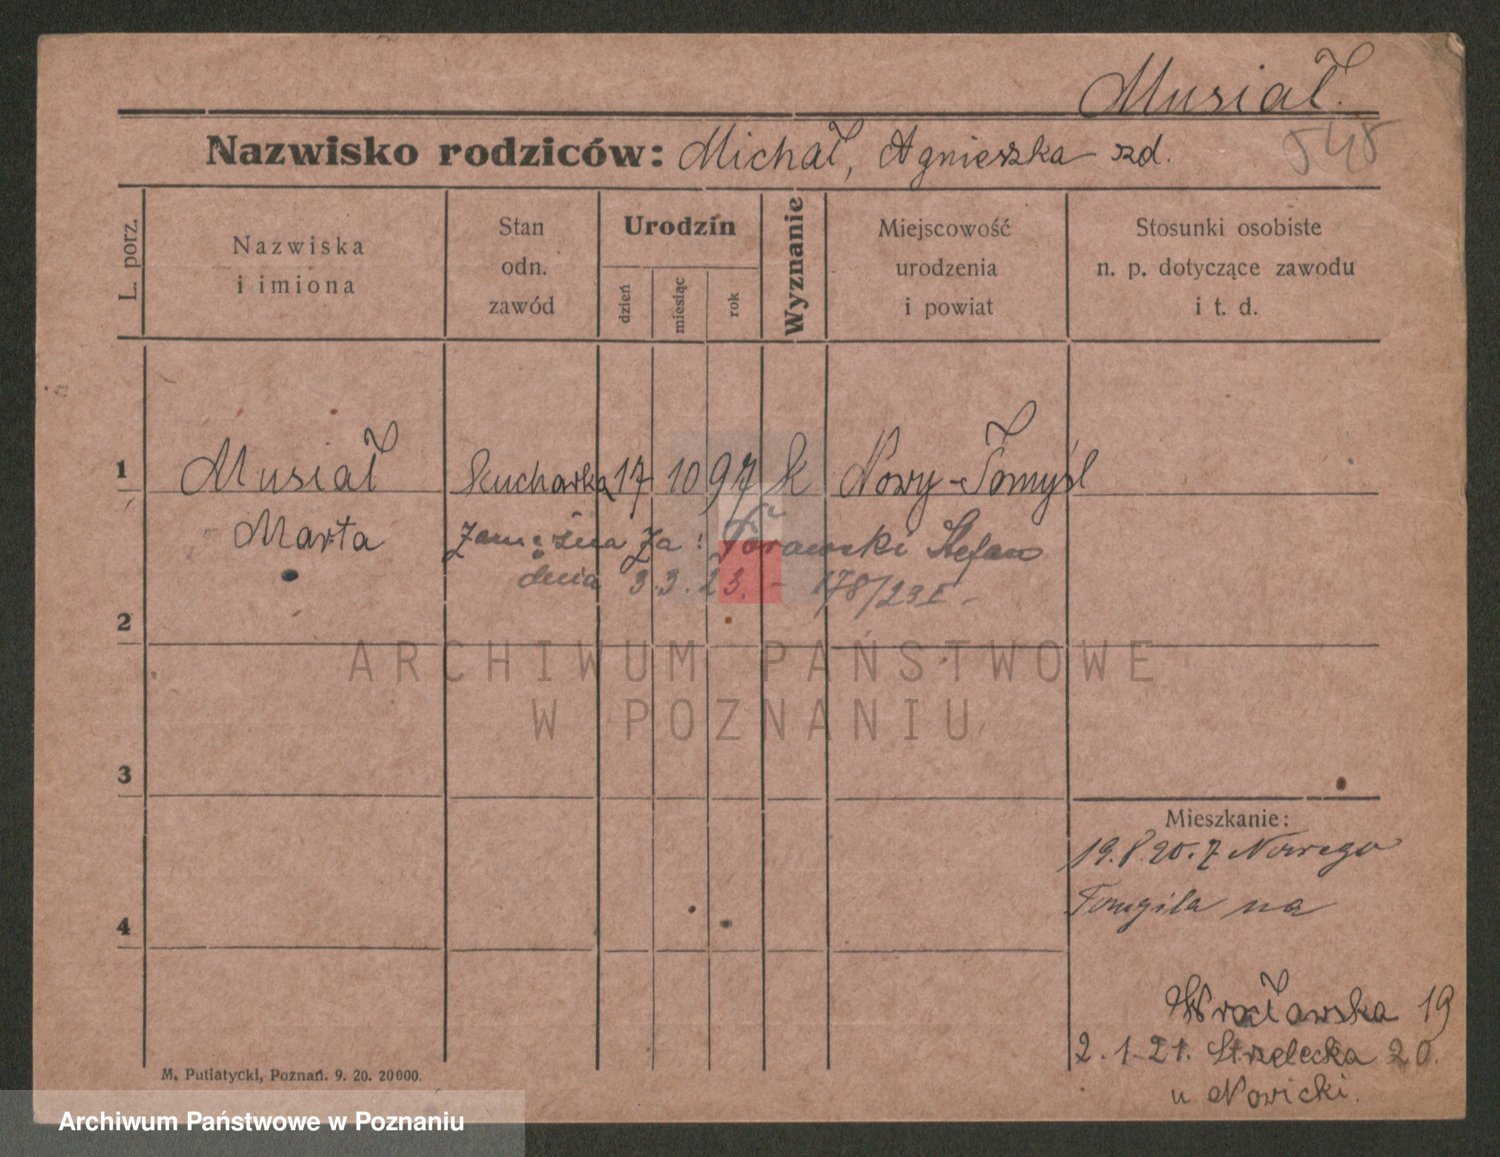 Musiał.
Nazwisko rodziców: Michał, Agnieszka zd.
545
L. porz.
Nazwiska
i imiona
Stan
odn.
zawód
Urodzin
dzień
miesiąc
rok
Wyznanie
Miejscowość
urodzenia
i powiat
Stosunki osobiste
n. p. dotyczące zawodu
i t. d.
1 Musiał Kucharka 17 10 97 k Nowy-Tomyśl
Marta zamężna za: Stefan
dnia 3.3.23. - 178/23 I -
2
ARCHIWUM PAŃSTWOWE
W POZNANIU
3
Mieszkanie:
19.8.20. z Nowego
Tomyśla na
4
Wrocławska 19
2.1.21. Strzelecka 20.
u Nowicki.
M. Putiatycki, Poznań. 9. 20. 20000.
Archiwum Państwowe w Poznaniu